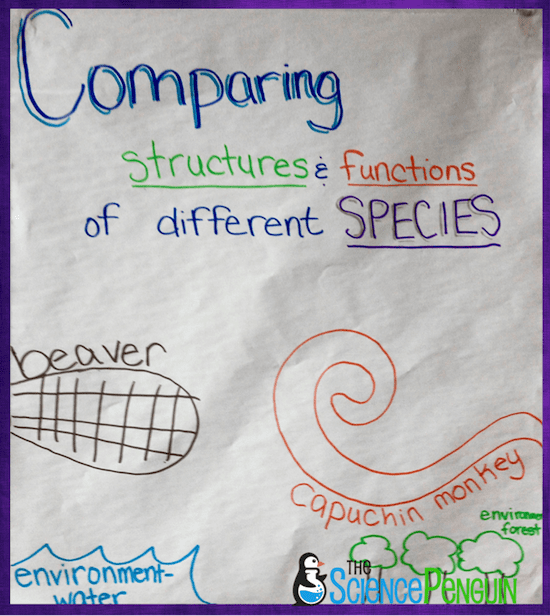 Comparing
structures & functions
of different SPECIES
beaver
Capuchin monkey
environme
forest
environment-
water
THE
SCIENCEPENGUIN